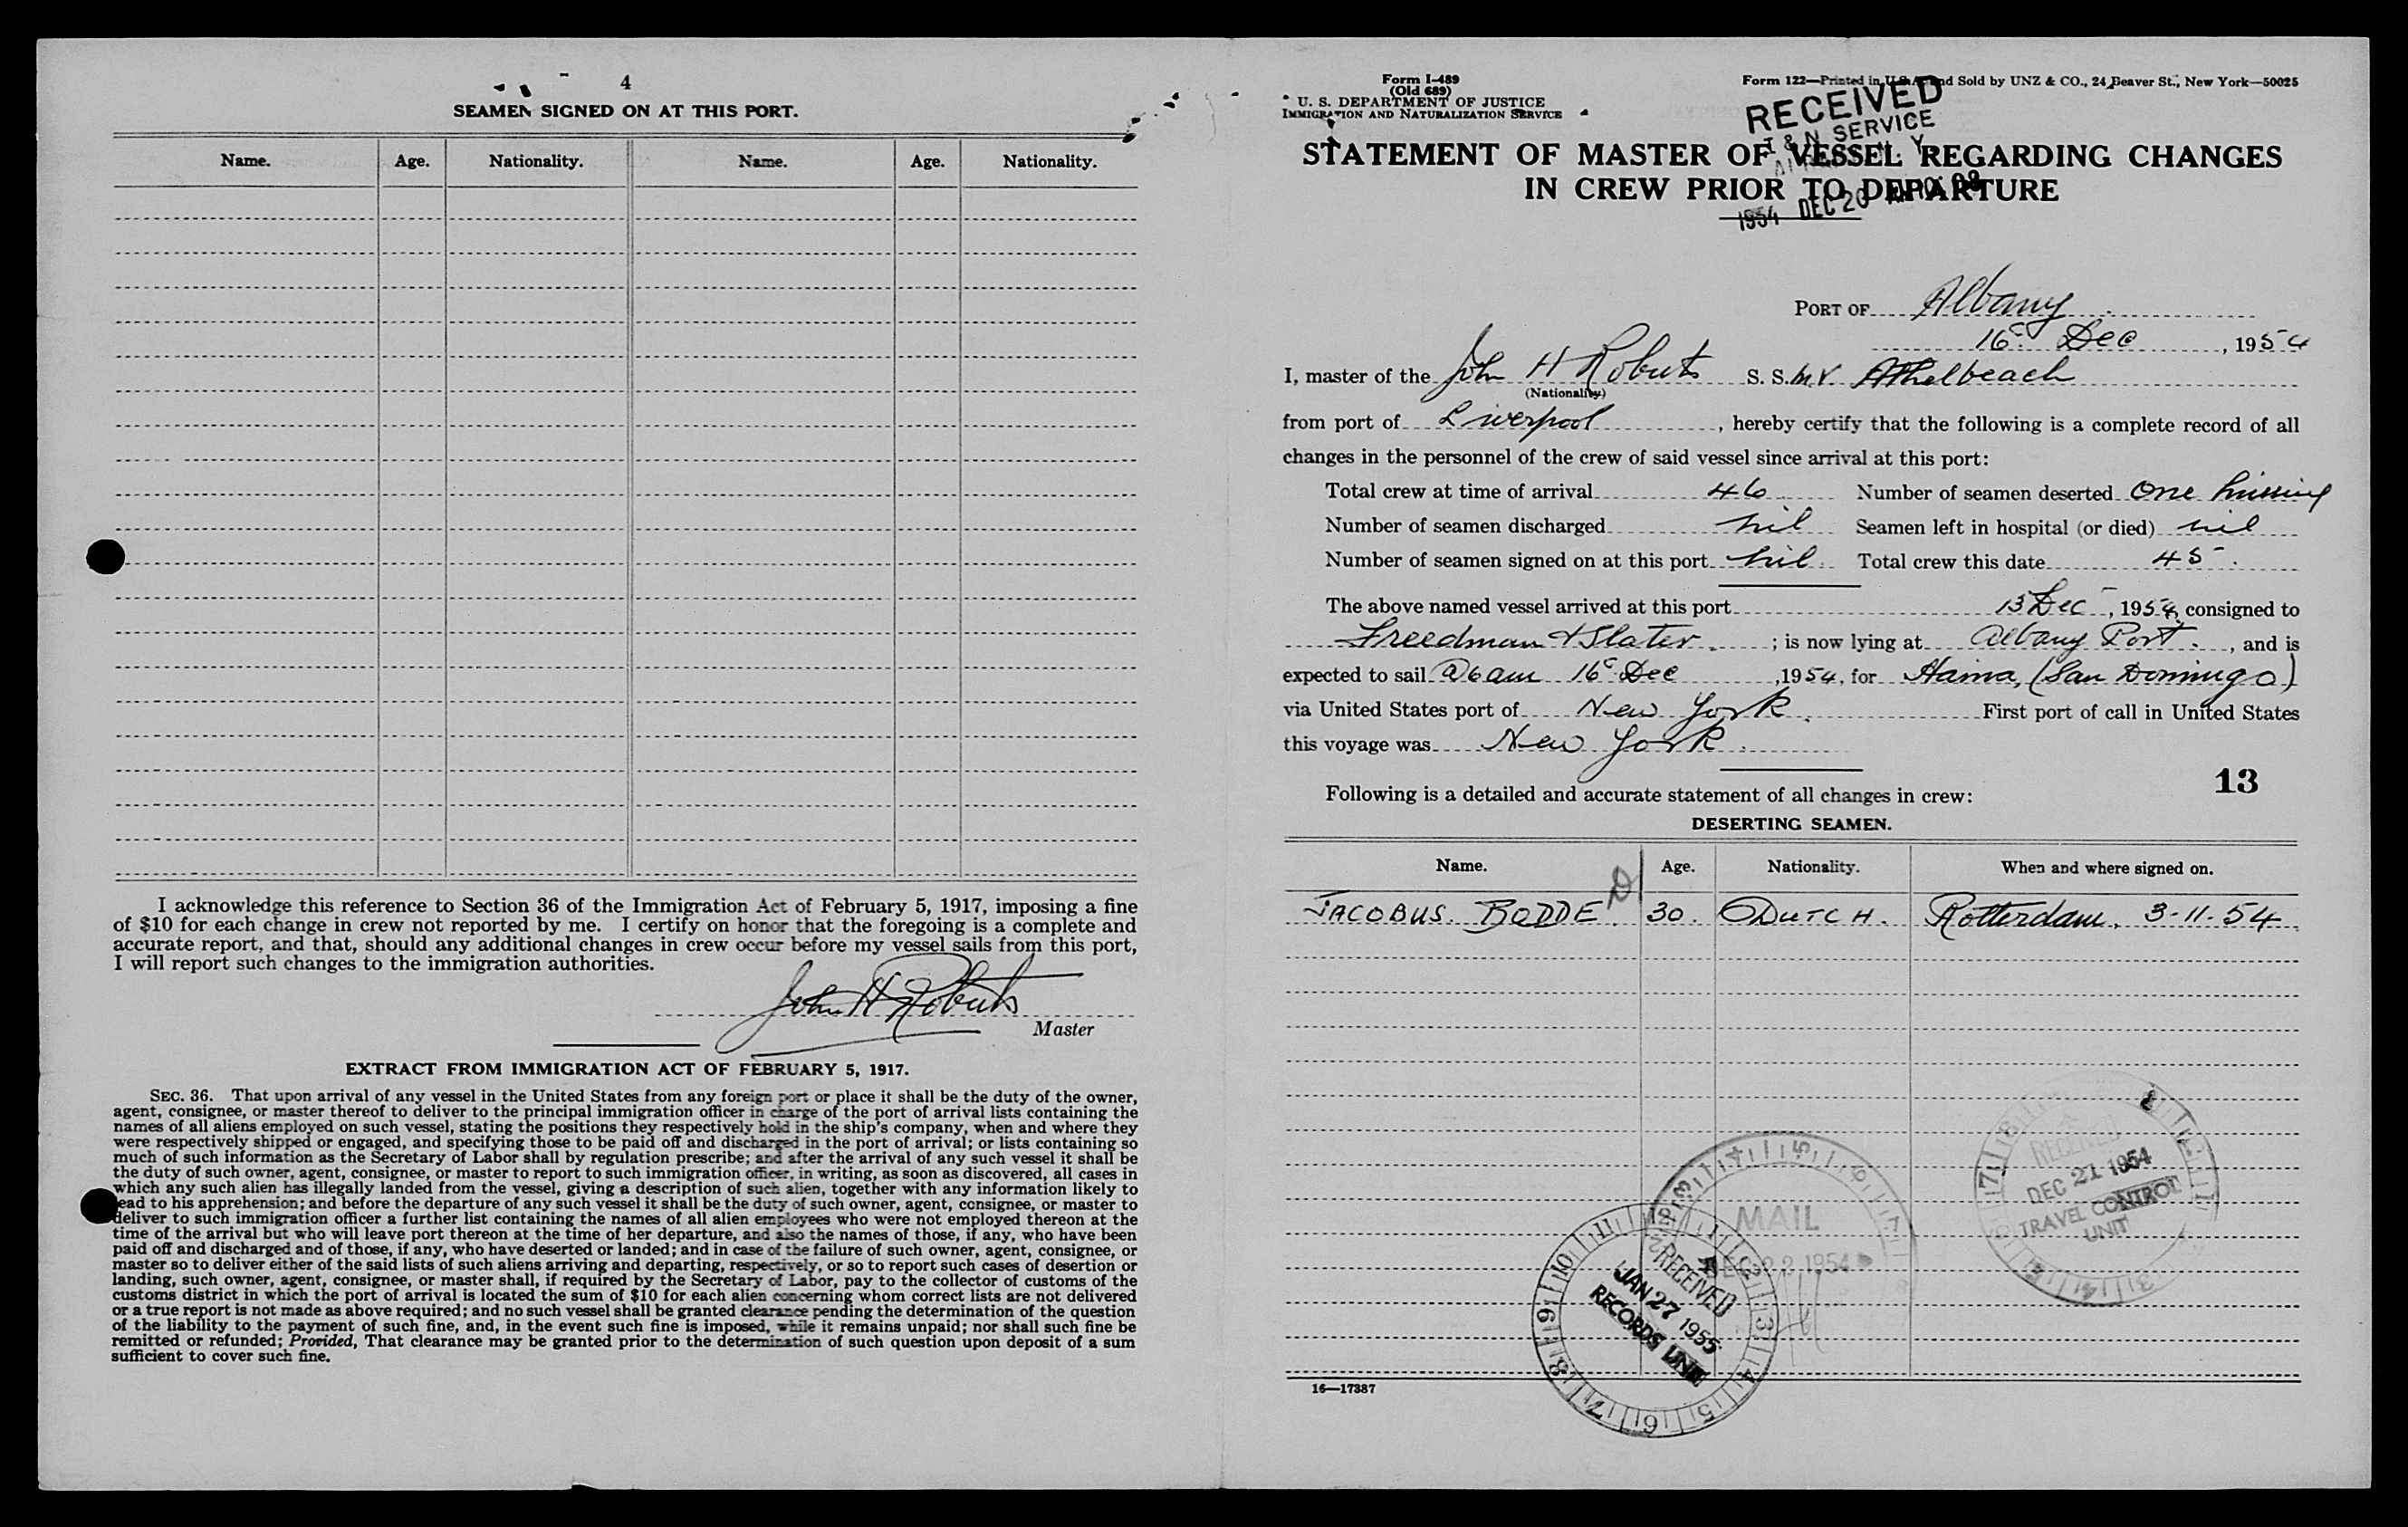 4
SEAMEN SIGNED ON AT THIS PORT.
Name. Age. Nationality. Name. Age. Nationality.
I acknowledge this reference to Section 36 of the Immigration Act of February 5, 1917, imposing a fine
of $10 for each change in crew not reported by me. I certify on honor that the foregoing is a complete and
accurate report, and that, should any additional changes in crew occur before my vessel sails from this port,
I will report such changes to the immigration authorities.
John H Roberts
Master
EXTRACT FROM IMMIGRATION ACT OF FEBRUARY 5, 1917.
SEC. 36. That upon arrival of any vessel in the United States from any foreign port or place it shall be the duty of the owner,
agent, consignee, or master thereof to deliver to the principal immigration officer in charge of the port of arrival lists containing the
names of all aliens employed on such vessel, stating the positions they respectively hold in the ship's company, when and where they
were respectively shipped or engaged, and specifying those to be paid off and discharged in the port of arrival; or lists containing so
much of such information as the Secretary of Labor shall by regulation prescribe; and after the arrival of any such vessel it shall be
the duty of such owner, agent, consignee, or master to report to such immigration officer, in writing, as soon as discovered, all cases in
which any such alien has illegally landed from the vessel, giving a description of such alien, together with any information likely to
lead to his apprehension; and before the departure of any such vessel it shall be the duty of such owner, agent, consignee, or master to
deliver to such immigration officer a further list containing the names of all alien employees who were not employed thereon at the
time of the arrival but who will leave port thereon at the time of her departure, and also the names of those, if any, who have been
paid off and discharged and of those, if any, who have deserted or landed; and in case of the failure of such owner, agent, consignee, or
master so to deliver either of the said lists of such aliens arriving and departing, respectively, or so to report such cases of desertion or
landing, such owner, agent, consignee, or master shall, if required by the Secretary of Labor, pay to the collector of customs of the
customs district in which the port of arrival is located the sum of $10 for each alien concerning whom correct lists are not delivered
or a true report is not made as above required; and no such vessel shall be granted clearance pending the determination of the question
of the liability to the payment of such fine, and, in the event such fine is imposed, while it remains unpaid; nor shall such fine be
remitted or refunded; Provided, That clearance may be granted prior to the determination of such question upon deposit of a sum
sufficient to cover such fine.
Form I-489
(Old 689)
U. S. DEPARTMENT OF JUSTICE
IMMIGRATION AND NATURALIZATION SERVICE
Form 122—Printed in U.S.A. and Sold by UNZ & CO., 24 Beaver St., New York—50025
RECEIVED
I & N SERVICE
1954 DEC 20
STATEMENT OF MASTER OF VESSEL REGARDING CHANGES
IN CREW PRIOR TO DEPARTURE
PORT OF Albany
16 Dec, 1954
I, master of the John H Roberts S. S. M.V. Athelbeach
(Nationality)
from port of Liverpool, hereby certify that the following is a complete record of all
changes in the personnel of the crew of said vessel since arrival at this port:
Total crew at time of arrival 46 Number of seamen deserted One missing
Number of seamen discharged nil Seamen left in hospital (or died) nil
Number of seamen signed on at this port nil Total crew this date 45.
The above named vessel arrived at this port 15 Dec, 1954, consigned to
Freedman & Slater.; is now lying at Albany Port., and is
expected to sail @ 6 am 16 Dec, 1954, for Haina, (San Domingo)
via United States port of New York. First port of call in United States
this voyage was New York.
13
Following is a detailed and accurate statement of all changes in crew:
DESERTING SEAMEN.
Name. Age. Nationality. When and where signed on.
D
JACOBUS. BODDE. 30. DUTCH. Rotterdam. 3-11-54
RECEIVED
DEC 21 1954
TRAVEL CONTROL
UNIT
MAIL
DEC 22 1954
RECEIVED
JAN 27 1955
RECORDS UNIT
16—17387